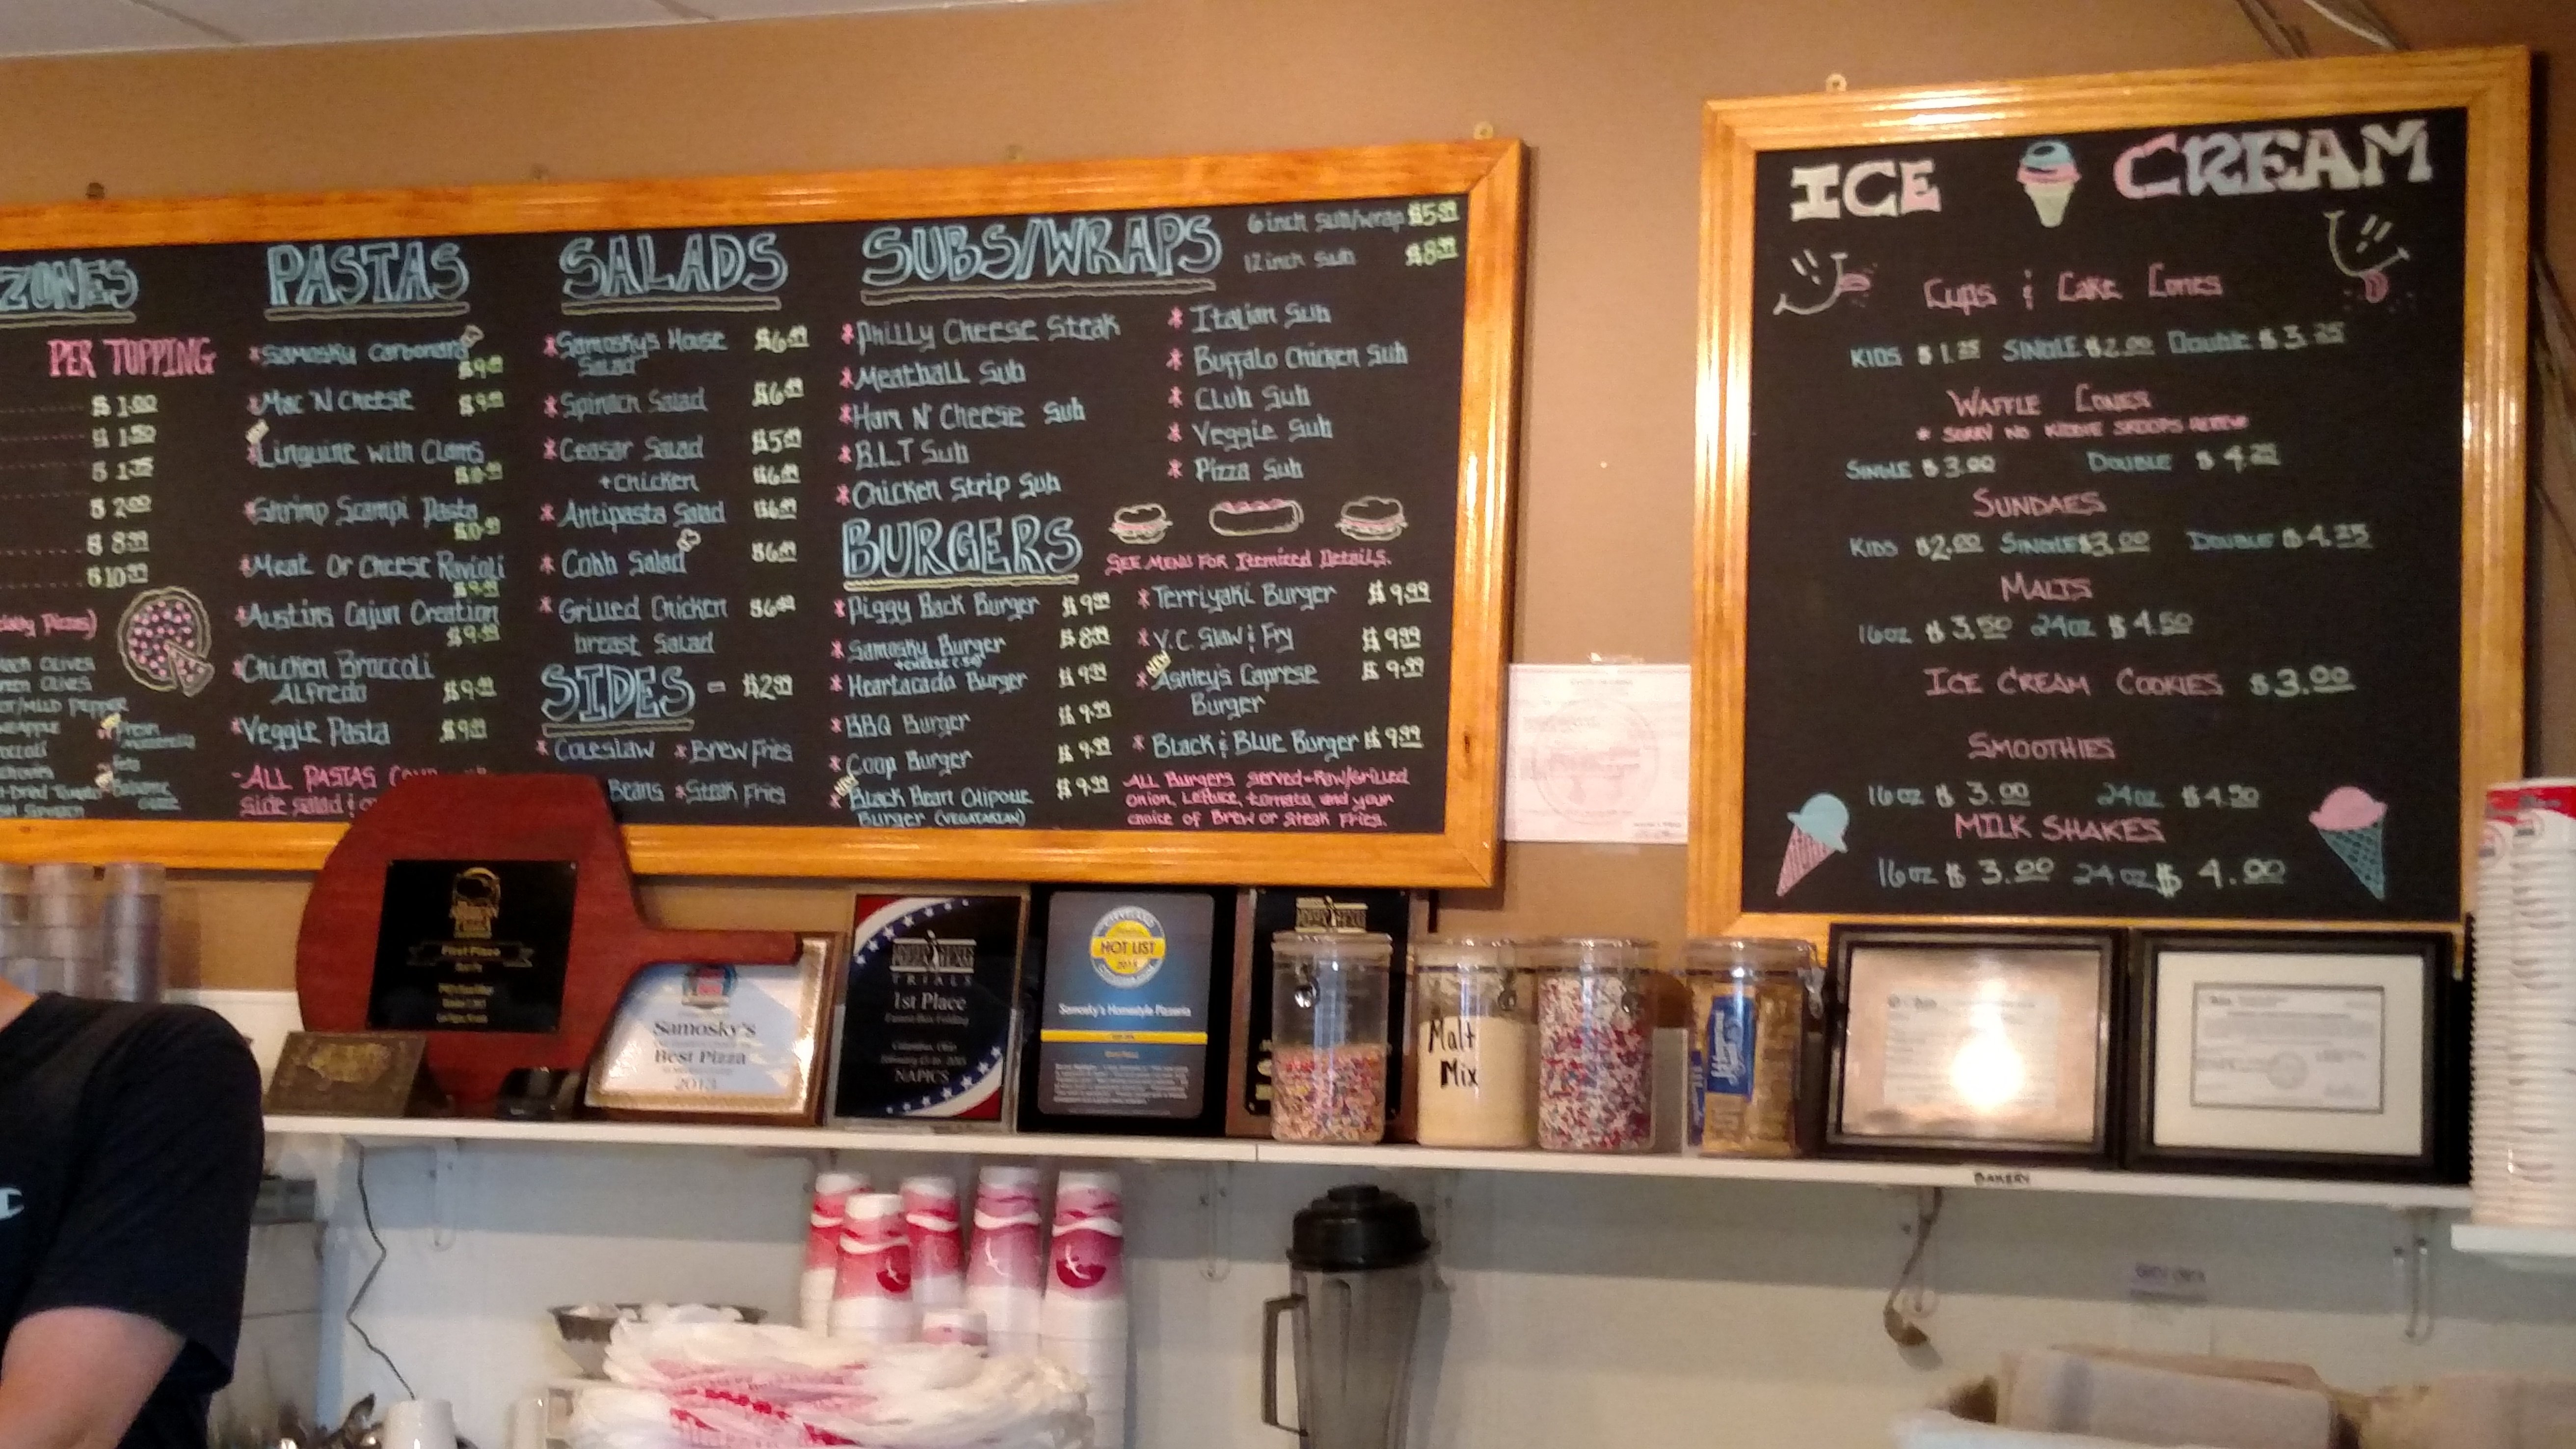 ZONES
PER TOPPING
$1.00
$1.50
$1.75
$2.00
$8.99
$10.99
OLIVES
OLIVES
/MILD PEPPER
Fresh
Mozzarella
Feta
Balsamic
PASTAS
*Samosky Carbonara
$9.99
*Mac 'N Cheese $9.99
NEW
*Linguine with Clams
*Shrimp Scampi Pasta
*Meat Or Cheese Ravioli
$9.99
*Austins Cajun Creation
$9.99
*Chicken Broccoli
Alfredo $9.99
*Veggie Pasta $9.99
-ALL PASTAS
side salad &
SALADS
*Samosky's House $6.99
Salad
*Spinach Salad $6.99
*Ceasar Salad $5.99
+Chicken $6.99
*Antipasta Salad $6.99
*Cobb Salad $6.99
*Grilled Chicken $6.99
breast Salad
SIDES - $2.99
*Coleslaw *Brew Fries
Beans *Steak Fries
SUBS/WRAPS
6 inch Sub/wrap $5.99
12 inch Sub $8.99
*Philly Cheese Steak
*Meatball Sub
*Ham N' Cheese Sub
*B.L.T Sub
*Chicken Strip Sub
*Italian Sub
*Buffalo Chicken Sub
*Club Sub
*Veggie Sub
*Pizza Sub
BURGERS
SEE MENU FOR Itemized Details.
*Piggy Back Burger $9.99
*Samosky Burger $8.99
+CHEESE (.50)
*Heartacada Burger $9.99
*BBQ Burger $9.99
*Coop Burger $9.99
NEW
*Black Bean Chipotle $9.99
Burger (VEGATARIAN)
*Terriyaki Burger $9.99
*V.C. Slaw & Fry $9.99
NEW
*Ashley's Caprese $9.99
Burger
*Black & Blue Burger $9.99
-ALL Burgers served w/ Raw/Grilled
onion, Lettuce, tomato, and your
choice of Brew or Steak Fries.
ICE CREAM
Cups & Cake Cones
KIDS $1.25 SINGLE $2.00 Double $3.25
WAFFLE CONES
* SORRY NO KIDDIE SCOOPS
SINGLE $3.00 DOUBLE $4.25
SUNDAES
KIDS $2.00 SINGLE $3.00 DOUBLE $4.25
MALTS
16oz $3.50 24oz $4.50
ICE CREAM COOKIES $3.00
SMOOTHIES
16oz $3.00 24oz $4.50
MILK SHAKES
16oz $3.00 24oz $4.00
First Place
Samosky's
Best Pizza
2013
TRIALS
1st Place
Fastest Box Folding
Columbus, Ohio
NAPICS
HOT LIST
Samosky's Homestyle Pizzeria
Malt
Mix
BAKERY